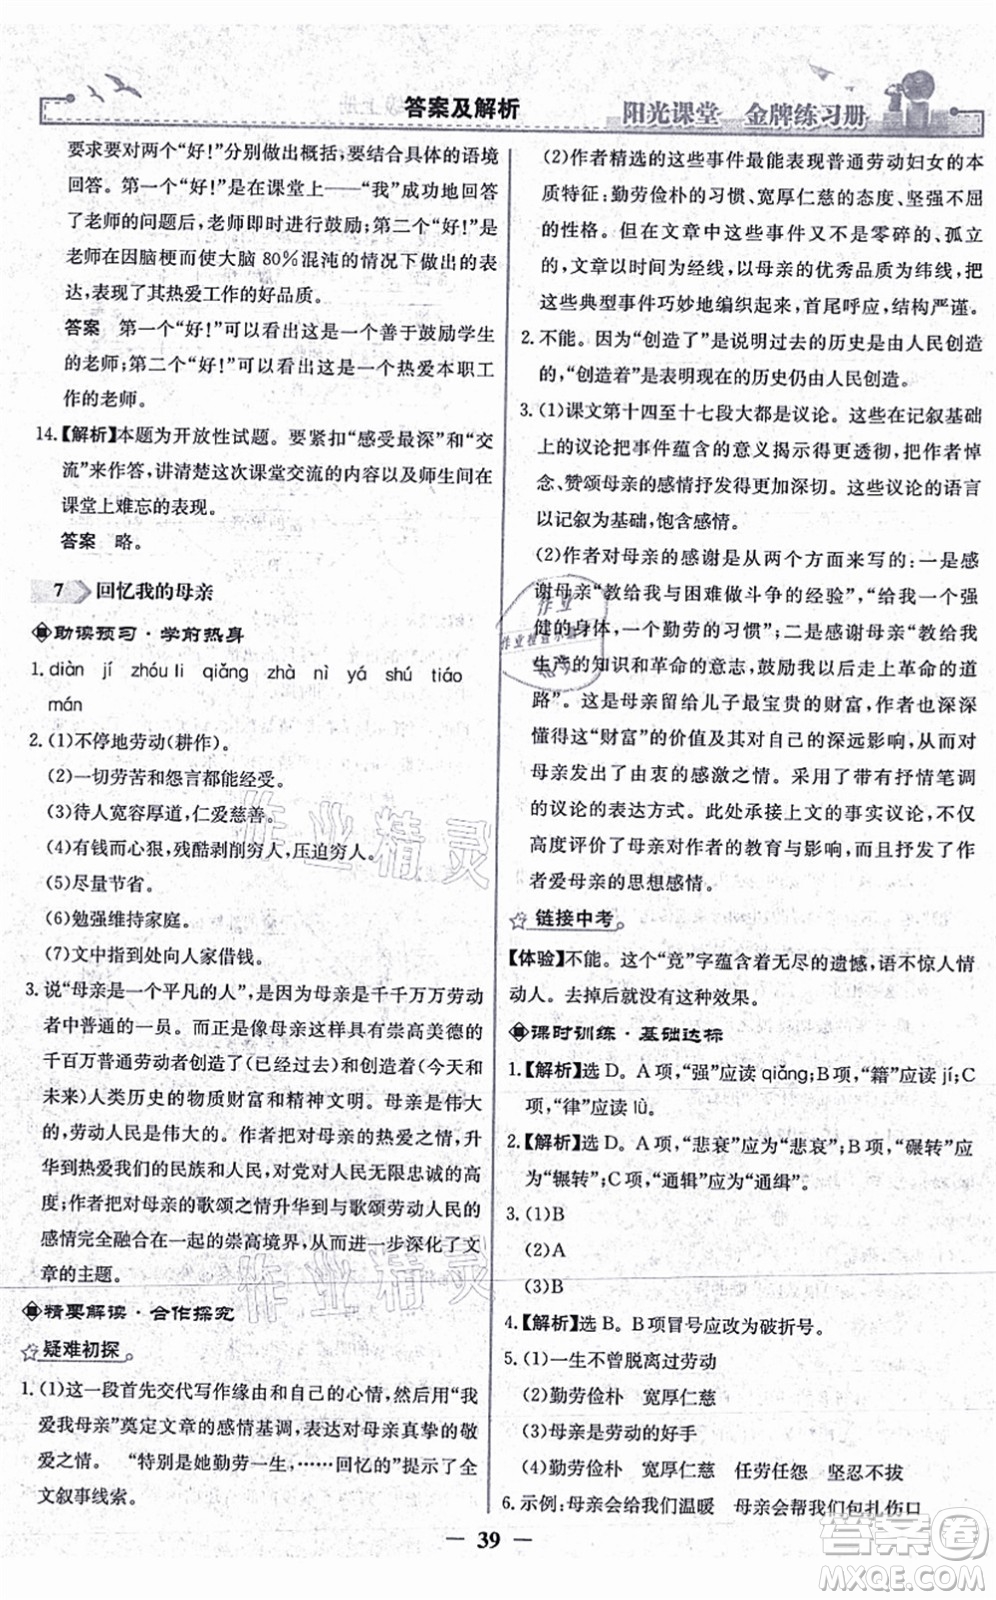 答案及解析
阳光课堂 金牌练习册
要求要对两个“好！”分别做出概括，要结合具体的语境
回答。第一个“好！”是在课堂上——“我”成功地回答
了老师的问题后，老师即时进行鼓励；第二个“好！”是
老师在因脑梗而使大脑 80%混沌的情况下做出的表
达，表现了其热爱工作的好品质。
答案 第一个“好！”可以看出这是一个善于鼓励学生
的老师；第二个“好！”可以看出这是一个热爱本职工
作的老师。
14.【解析】本题为开放性试题。要紧扣“感受最深”和“交
流”来作答，讲清楚这次课堂交流的内容以及师生间在
课堂上难忘的表现。
答案 略。
7 回忆我的母亲
助读预习·学前热身
1. diàn jí zhóu li qiǎng zhà nì yá shú tiáo
mán
2. (1)不停地劳动(耕作)。
(2)一切劳苦和怨言都能经受。
(3)待人宽容厚道，仁爱慈善。
(4)有钱而心狠，残酷剥削穷人，压迫穷人。
(5)尽量节省。
(6)勉强维持家庭。
(7)文中指到处向人家借钱。
3. 说“母亲是一个平凡的人”，是因为母亲是千千万万劳动
者中普通的一员。而正是像母亲这样具有崇高美德的
千百万普通劳动者创造了(已经过去)和创造着(今天和
未来)人类历史的物质财富和精神文明。母亲是伟大
的，劳动人民是伟大的。作者把对母亲的热爱之情，升
华到热爱我们的民族和人民，对党对人民无限忠诚的高
度；作者把对母亲的歌颂之情升华到与歌颂劳动人民的
感情完全融合在一起的崇高境界，从而进一步深化了文
章的主题。
精要解读·合作探究
疑难初探
1. (1)这一段首先交代写作缘由和自己的心情，然后用“我
爱我母亲”奠定文章的感情基调，表达对母亲真挚的敬
爱之情。 “特别是她勤劳一生，……回忆的”提示了全
文叙事线索。
(2)作者精选的这些事件最能表现普通劳动妇女的本
质特征：勤劳俭朴的习惯、宽厚仁慈的态度、坚强不屈的
性格。但在文章中这些事件又不是零碎的、孤立
的，文章以时间为经线，以母亲的优秀品质为纬线，把
这些典型事件巧妙地编织起来，首尾呼应，结构严谨。
2. 不能。因为“创造了”是说明过去的历史是由人民创造
的，“创造着”是表明现在的历史仍由人民创造。
3. (1)课文第十四至十七段大都是议论。这些在记叙基础
上的议论把事件蕴含的意义揭示得更透彻，把作者悼
念、赞颂母亲的感情抒发得更加深切。这些议论的语言
以记叙为基础，饱含感情。
(2)作者对母亲的感谢是从两个方面来写的：一是感
谢母亲“教给我与困难做斗争的经验”，“给我一个强
健的身体，一个勤劳的习惯”；二是感谢母亲“教给我
生产的知识和革命的意志，鼓励我走上革命的道
路”。这是母亲留给儿子最宝贵的财富，作者也深深
懂得这“财富”的价值及其对自己的深远影响，从而
对母亲发出了由衷的感激之情。采用了带有抒情笔调
的议论的表达方式。此处承接上文的事实议论，不仅
高度概括了母亲对作者的教育与影响，也抒发了作
者爱母亲的思想感情。
链接中考
【体验】不能。这个“竟”字蕴含着无尽的遗憾，语不惊人情
动人。去掉后就没有这种效果。
课时训练·基础达标
1.【解析】选 D。A 项，“强”应读 qiǎng；B 项，“籍”应读 jí；C
项，“律”应读 lǜ。
2.【解析】选 D。A 项，“悲衰”应为“悲哀”；B 项，“碾转”应
为“辗转”；C 项，“通辑”应为“通缉”。
3. (1)B
(2)A
(3)B
4.【解析】选 B。B 项冒号应改为破折号。
5. (1)一生不曾脱离过劳动
(2)勤劳俭朴 宽厚仁慈
(3)母亲是个好劳动的好手
(4)勤劳俭朴 宽厚仁慈 任劳任怨 坚忍不拔
6. 示例：母亲会给我们温暖 母亲会帮我们包扎伤口
— 39 —
作业精灵
作业精灵
答案圈
MXQE.COM